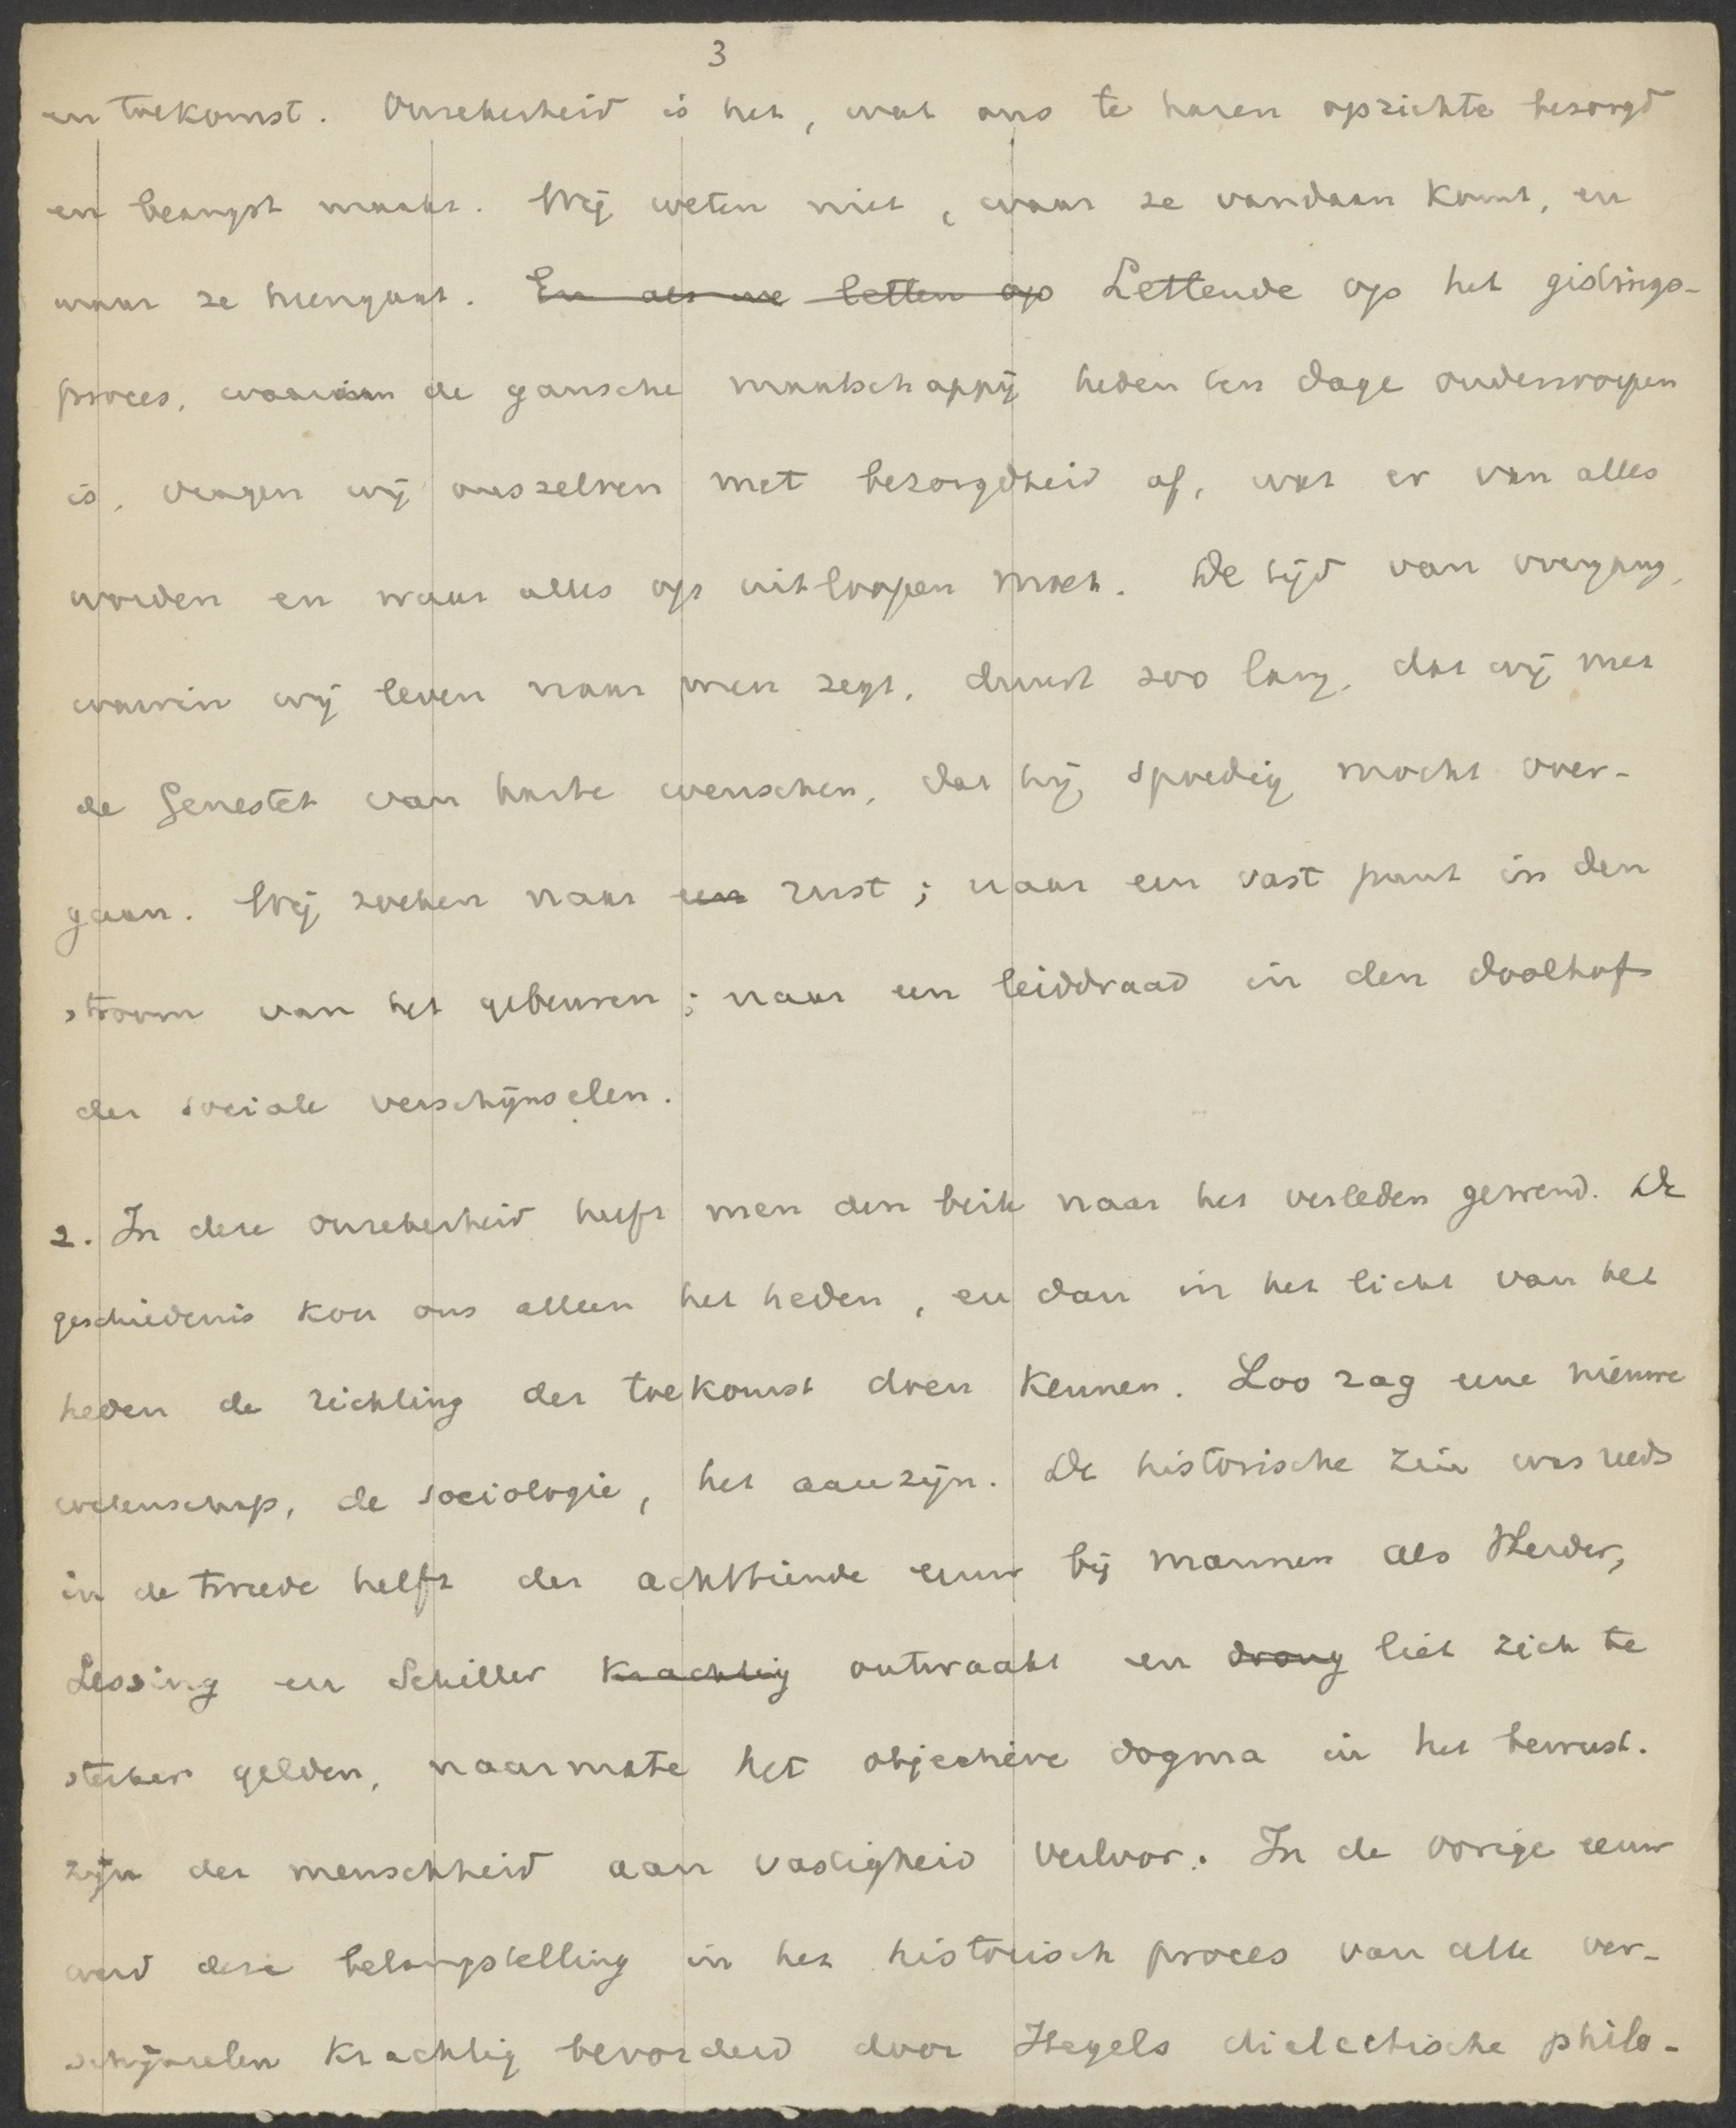 3
en toekomst. Onzekerheid is het, wat ons te haren opzichte bezorgd
en beangst maakt. Wij weten niet, waar ze vandaan komt, en
waar ze heengaat. ~~En als we letten op~~ Lettende op het gistings-
proces, waaraan de gansche maatschappij heden ten dage onderworpen
is, vragen wij onszelven met bezorgdheid af, wat er van alles
worden en waar alles op uitloopen moet. De tijd van overgang,
waarin wij leven naar men zegt, duurt zoo lang, dat wij met
de Genestet van harte wenschen, dat hij spoedig mocht over-
gaan. Wij zoeken naar ~~een~~ rust; naar een vast punt in den
stroom van het gebeuren; naar een leiddraad in den doolhof
der sociale verschijnselen.
2. In deze onzekerheid heeft men den blik naar het verleden gewend. De
geschiedenis kon ons alleen het heden, en dan in het licht van het
heden de richting der toekomst doen kennen. Zoo zag eene nieuwe
wetenschap, de sociologie, het aanzijn. De historische zin was reeds
in de tweede helft der achttiende eeuw bij mannen als Herder,
Lessing en Schiller ~~krachtig~~ ontwaakt en ~~drong~~ liet zich te
sterker gelden, naarmate het objectieve dogma in het bewust-
zijn der menschheid aan vastigheid verloor. In de vorige eeuw
werd deze belangstelling in het historisch proces van alle ver-
schijnselen krachtig bevorderd door Hegels dialectische philo-